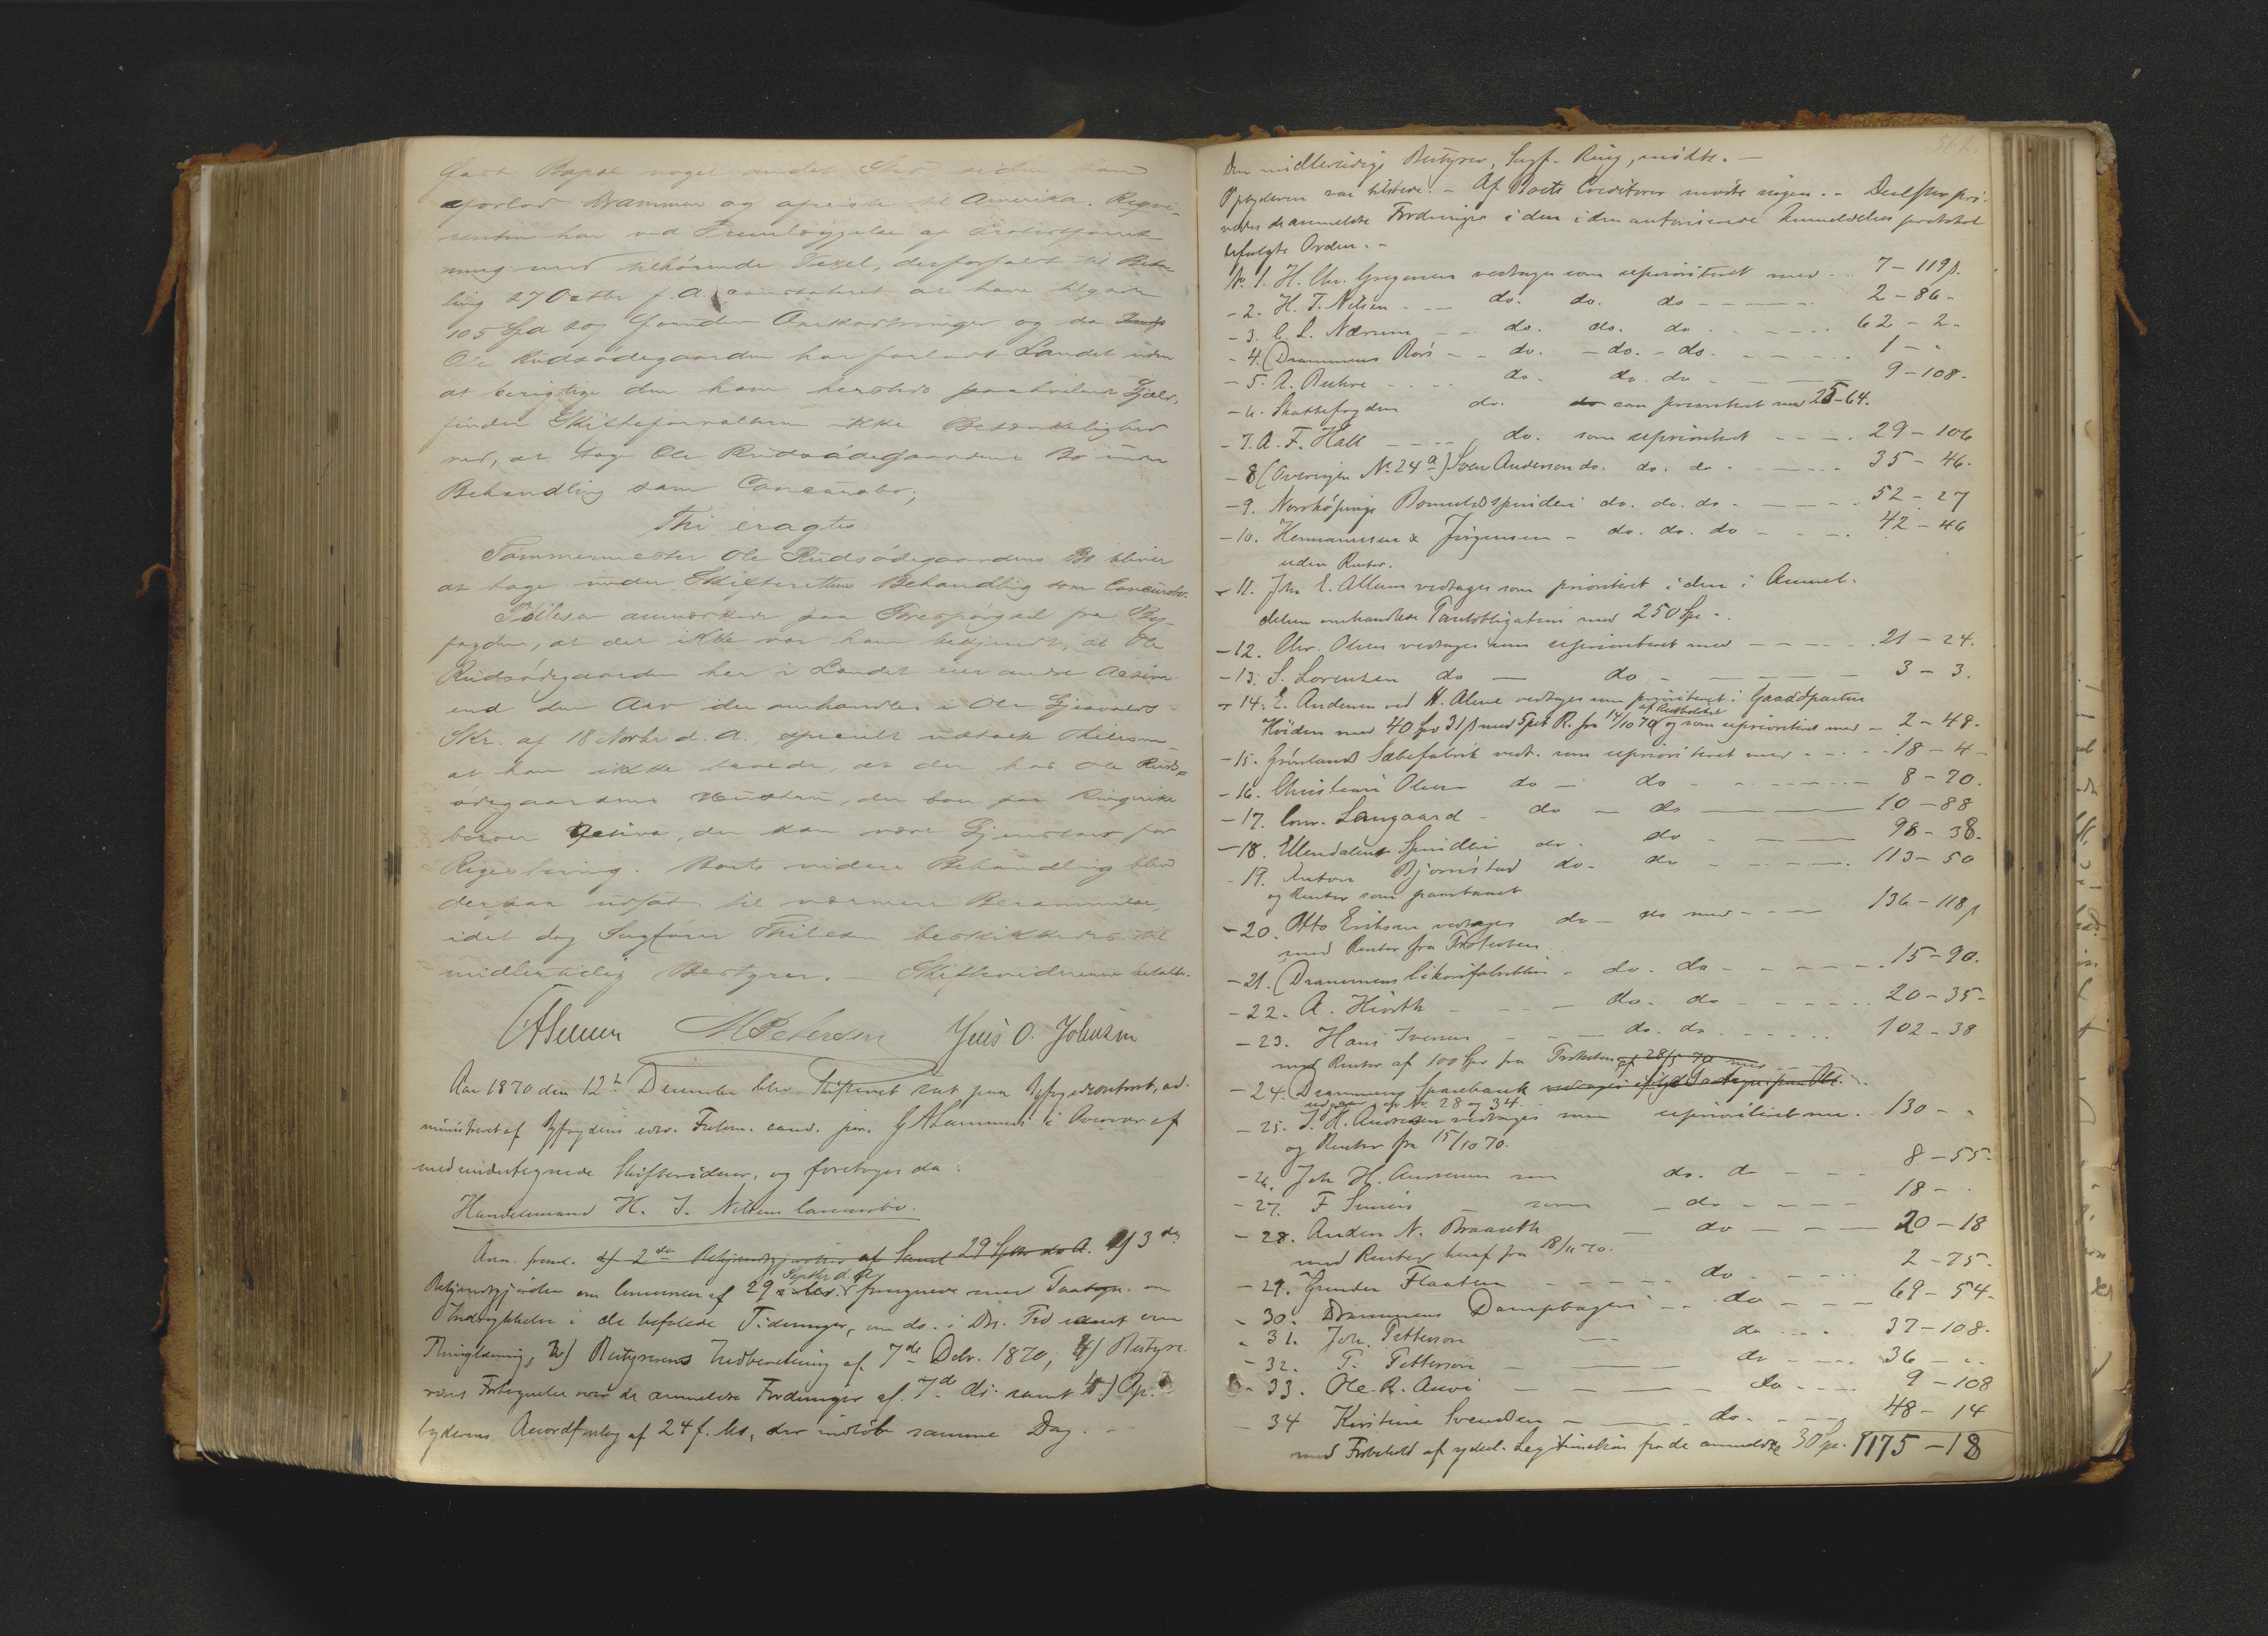 fast Bopæl noget andet Sted siden han
forlod Drammen og afreiste til Amerika. Reqvi-
renten har ved Fremlæggelse af Protestforret-
ning med tilhørende Vexel, der forfaldt til Beta-
ling 27 Octbr f. A. constateret at have tilgode
105 Spd og foruden Omkostninger og da
Ole Rudsødegaarden har forladt Landet uden
at berigtige den ham hersteds paahvilende Gjæld,
finder Skifteforvalteren ikke Betænkelighed
ved, at tage Ole Rudsødegaardens Bo under
Behandling som Concursbo;
Thi eragtes:
Tømmermester Ole Rudsødegaardens Bo bliver
at tage under Skifterettens Behandling som Concursbo.
Thilesen anmærkede paa Forespørgsel fra By-
fogden, at det ikke var ham bekjendt, at Ole
Rudsødegaarden her i Landet eier andre Activa
end den Arv der omhandles i Ole
Skr. af 18 Novbr d. A., specielt Thilesen
at han ikke troede, at der hos Ole Ruds-
ødegaardens Hustru, der bor paa Ringerike
beroer Activa, der kan være Gjenstand for
Registrering. Boets videre Behandling blev
derpaa udsat til nærmere Berammelse,
idet dog Sagfører Thilesen beskikkedes til
midlertidig Bestyrer. — Skiftevidnerne betalte.
M Petersen Jens O. Johnsen
Aar 1870 den 12te December blev Skifteret sat paa Byfogedcontoret, ad-
ministreret af Byfogdens edsv. Fuldm. cand. jur. G A Lammers i Overvær af
medundertegnede Skiftevidner, og foretoges da:
Handelsmand H. J. Nilsens Concursbo.
Ann. frem. 1) 2den Bekjendtgjørelse af 29 Septbr d. A. 1) 3de
Bekjendtgjørelser om Concursen af 29 Septbr d. A. forsynede med Paategn. om
Indrykkelse i de befalede Tidender, om do. i Dr. Tid samt om
Thinglæsning, 2) Bestyrerens Indberetning af 7de Decbr. 1870, 3) Besty-
rerens Fortegnelse over de anmeldte Fordringer af 7de ds. samt 4) Op-
byderens Accordforslag af 24 f. Ms, der indløb samme Dag. -
Den midlertidige Bestyrer, Sagf. Ring, mødte. -
Opbyderen var tilstede. - Af Boets Creditorer mødte ingen. -
de anmeldte Fordringer i den i den autoriserede Anmeldelses protokol
befulgte Orden. -
No 1. H. Chr. Gregersen vedtages som uprioriteret med 7 - 119 ß.
- 2. H. T. Nilsen - - do. do. do - - - 2 - 86 -
- 3. C. L. Nærum - - do. do. do - - - 62 - 2 -
- 4. Drammens Avis - - do. - do. - do. - - - 1 - "
- 5. A. Buhre - - - do. do. do - - - 9 - 108 -
- 6. Skattefogden do. do som prioriteret med 25 - 64.
- 7. A. F. Hall - - - do. som uprioriteret - - - 29 - 106
- 8 ( No 24 a) Sven Anderson do. do. do - - - 35 - 46.
- 9. Norrköpings Bomuldsspinderi do. do. do - - - 52 - 27
- 10. Hermannsen & Jörgensen - do. do. do - - - 42 - 46
uden Renter.
- 11. Jhs E. Allum vedtages som prioriteret i den i Anmel-
delsen omhandlede Pantobligation med 250 Spd. -
- 12. Chr. Olsen vedtages som uprioriteret med - - - 21 - 24.
- 13. S. Lorentzen do - do - - - 3 - 3.
- 14. E. Andersen ved H. Alme vedtages som prioriteret i Gaardparten
af Restbeløbet
Höiden med 40 Spd 31 ß med 5 pct R. fra 14/10 70 og som uprioriteret med - 2 - 48 -
- 15. Grönlands Sæbefabrik vedt. som uprioriteret med - - - 18 - 4 -
- 16. Christian Olsen do - do - - - 8 - 70.
- 17. Conr. Langaard - do - do - - - 10 - 88
- 18. Ellendalens Spinderi do - do - - - 98 - 38.
- 19. Anton Bjørnstad do - do - - - 113 - 50
og Renter som paastaaet
- 20. Otto Eriksen vedtages do - do med - - - 136 - 118 ß
med Renter fra Protesten
- 21. Drammens Likørfabrikken - do - do - - - 15 - 90.
- 22. A. Hiorth - - - do. do - - - 20 - 35 -
- 23. Hans Iversen - - - do. do - - - 102 - 38
med Renter af 100 Spd fra Protesten af 28/5 70
- 24. Drammens Sparebank
udgaar, cfr No 28 og 34.
- 25. J. H. Andresen vedtages som uprioriteret med - - 130 - "
og Renter fra 15/10 70.
- 26. Joh H. Andresen som do. do - - - 8 - 55 -
- 27. F - som - do - - - 18 - "
- 28. Anders N. Braaseth - do - - - 20 - 18
med Renter heraf fra 18/11 70.
- 29. Gunder Flaaten - - - do - - - 2 - 75 -
- 30. Drammens Dampbageri - - do - - - 69 - 54 -
- 31. Joh. Pettersen - - do - - - 37 - 108 -
- 32. P. Pettersen - - - do - - - 36 - "
- 33. Ole R. Aavi - - - do - - - 9 - 108
- 34 Kirstine Svendsen - - - do - - - 48 - 14
med Forbehold af yderl. Legitimation fra de anmeldte 30 Spd. 1175 - 18